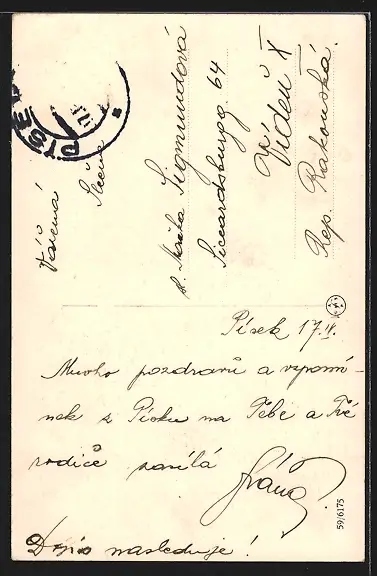 PÍSEK
Vážená
Slečna
sl. Máňa Sigmundová
Siccardsburgg 64
Vídeň X
Rep. Rakouská.
Písek 17.IV.
Mnoho pozdravů a vzpomí-
nek z Písku na Tebe a Tvé
rodiče zasílá
Fráňa
Dopis následuje!
59/6175